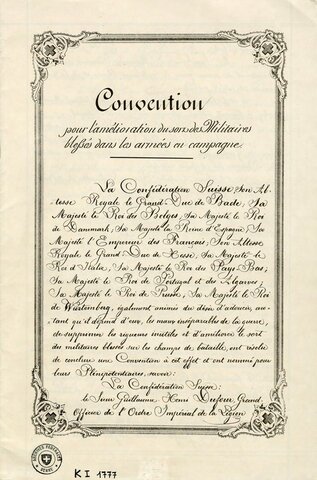 Convention
pour l'amélioration du sort des Militaires
blessés dans les armées en campagne.
La Confédération Suisse; Son Al-
tesse Royale le Grand-Duc de Bade; Sa
Majesté le Roi des Belges; Sa Majesté le Roi
de Danemark; Sa Majesté la Reine d'Espagne; Sa
Majesté l'Empereur des Français; Son Altesse
Royale le Grand-Duc de Hesse; Sa Majesté le
Roi d'Italie; Sa Majesté le Roi des Pays-Bas;
Sa Majesté le Roi de Portugal et des Algarves;
Sa Majesté le Roi de Prusse; Sa Majesté le Roi
de Würtemberg, également animés du désir d'adoucir, au-
tant qu'il dépend d'eux, les maux inséparables de la guerre,
de supprimer les rigueurs inutiles et d'améliorer le sort
des militaires blessés sur les champs de bataille, ont résolu
de conclure une Convention à cet effet et ont nommé pour
leurs Plénipotentiaires, savoir:
La Confédération Suisse:
le Sieur Guillaume Henri Dufour, Grand
Officier de l'Ordre Impérial de la Légion
K I 1777